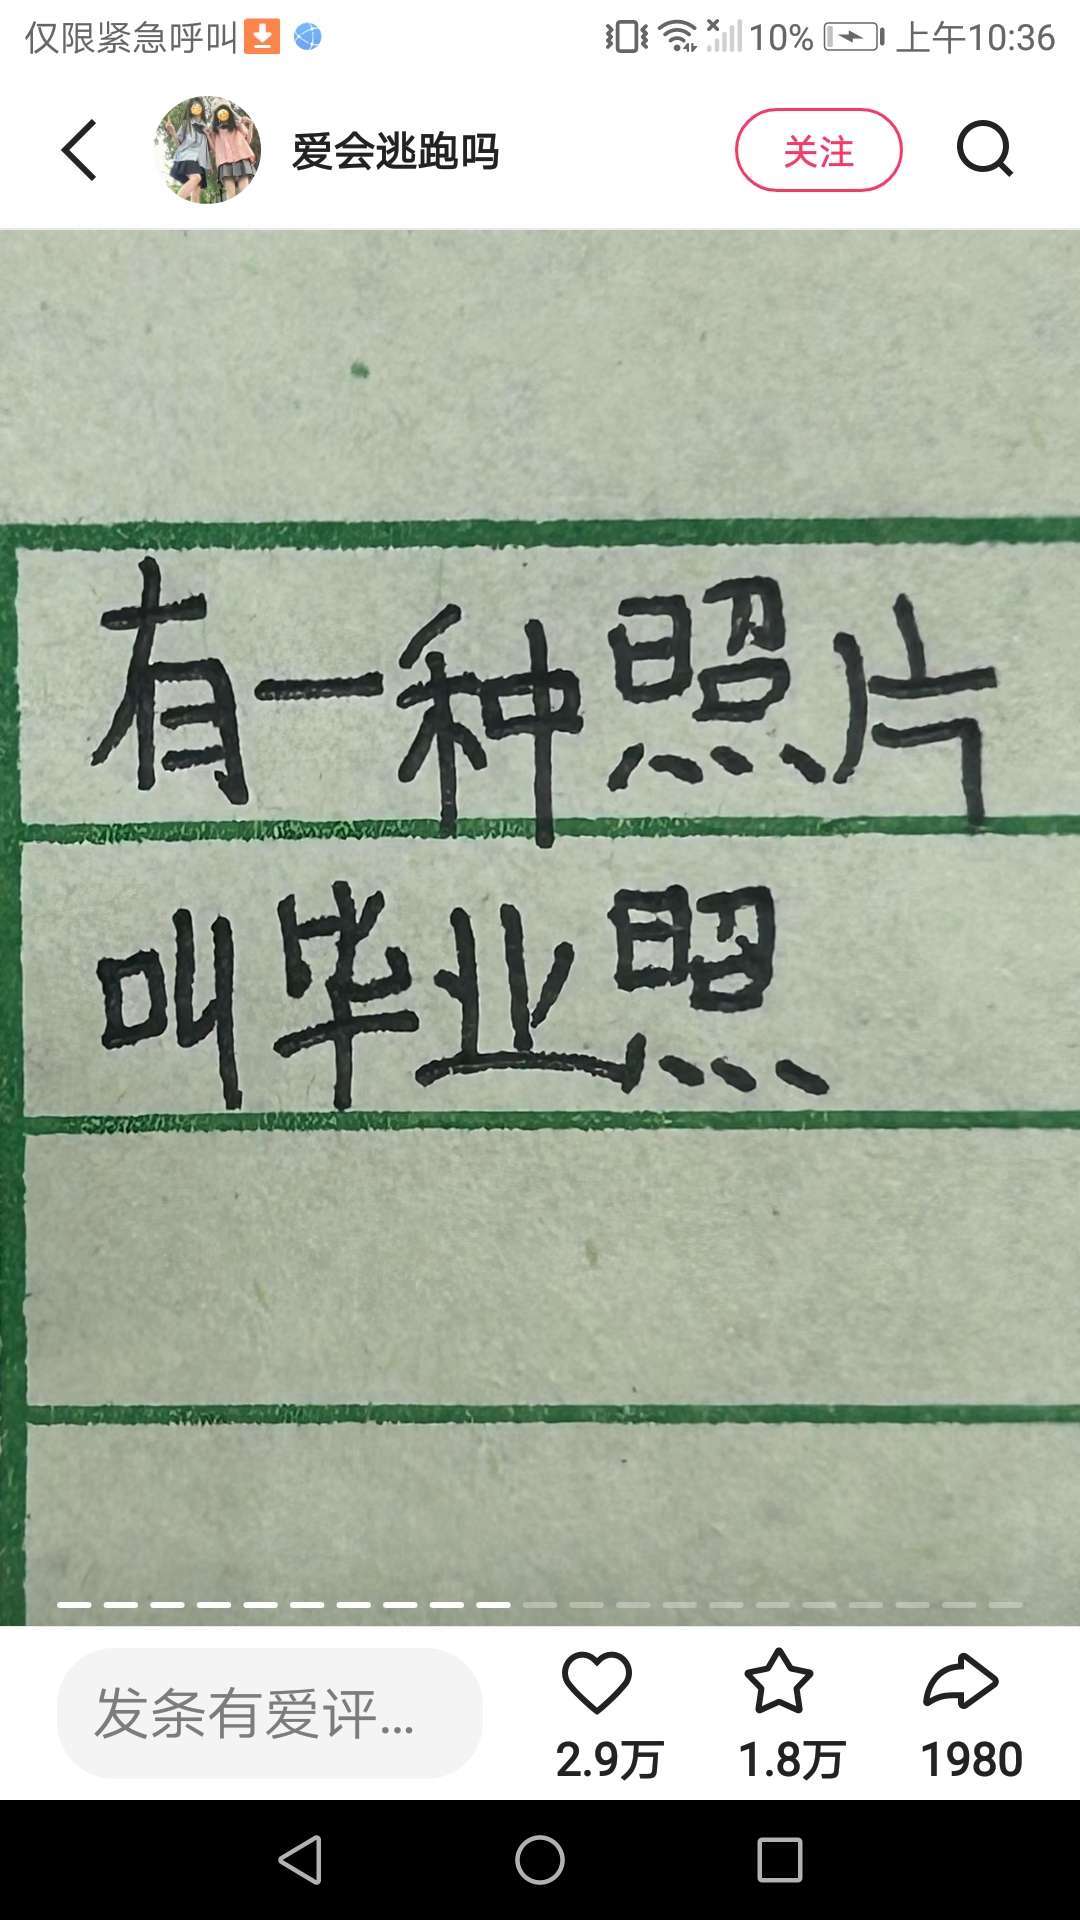 仅限紧急呼叫 10% 上午10:36
爱会逃跑吗 关注
有一种照片
叫毕业照
发条有爱评...
2.9万 1.8万 1980